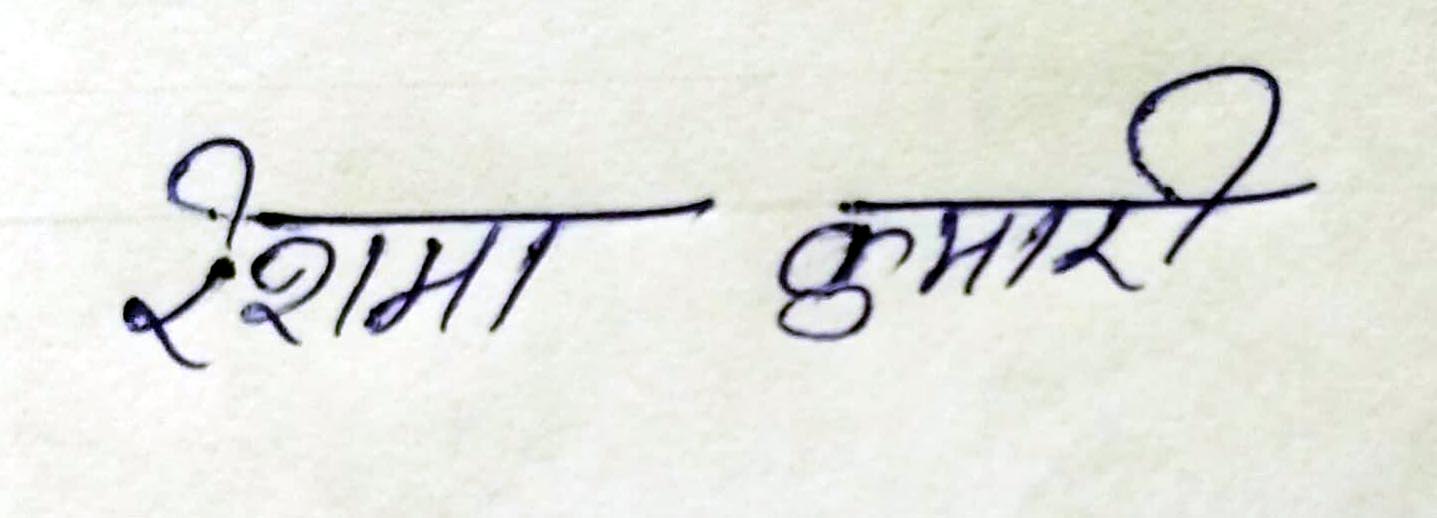 रेशमा कुमारी